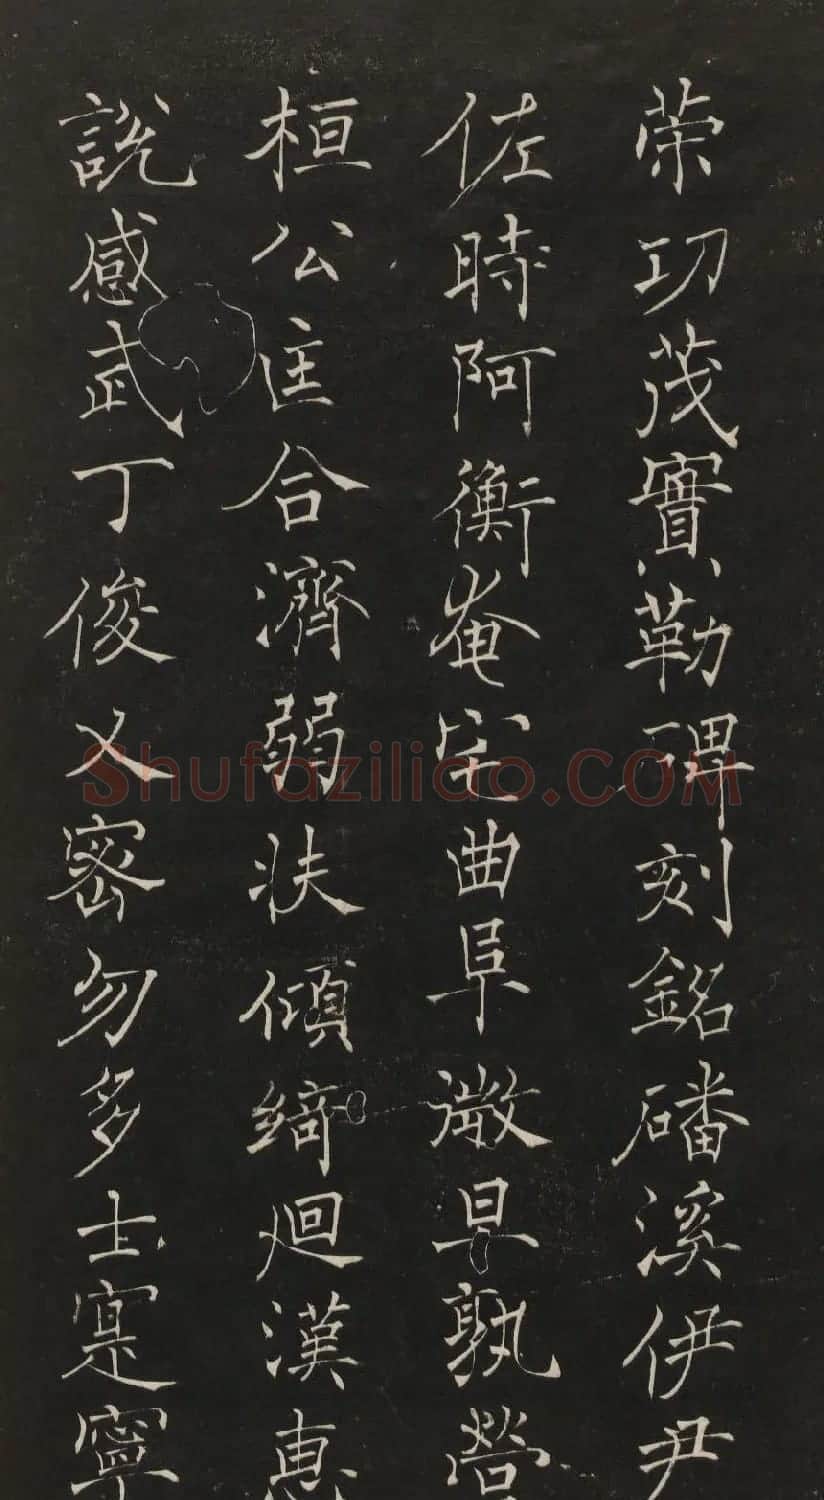 荣㓛茂實勒碑刻銘磻溪伊尹
佐時阿衡奄宅曲阜微早孰營
桓公匡合濟弱扶傾綺迴漢惠
說感武丁俊乂密勿多士寔寧
Shufaziliao.COM